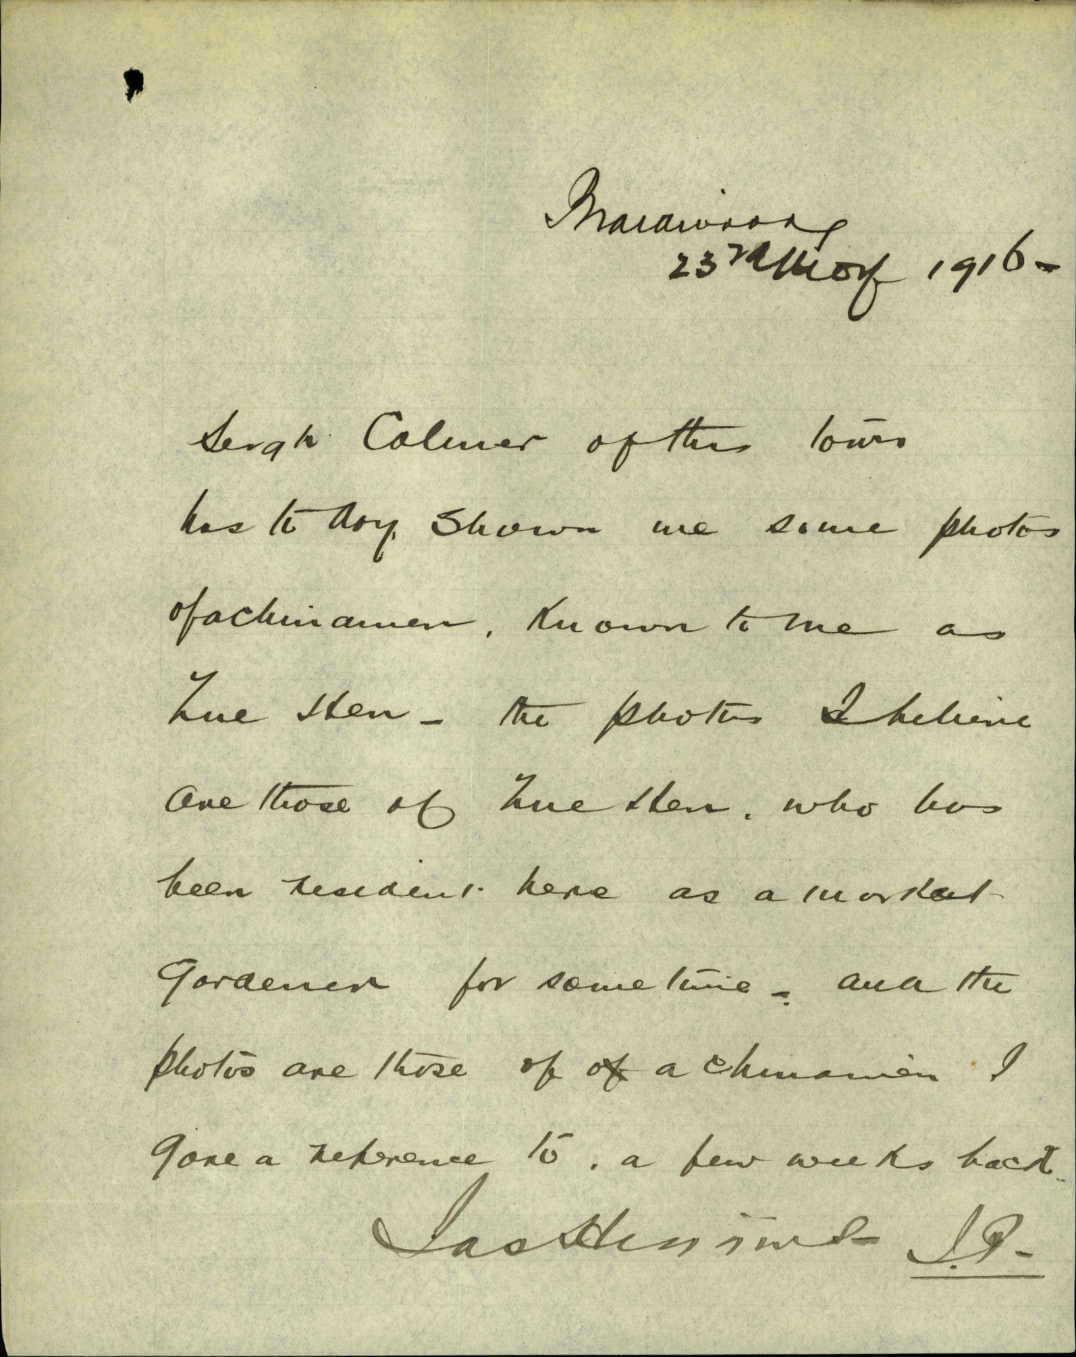 23rd May 1916 -
Sergt Colmer of this town
has to day, shown me some photos
of a chinamen, Known to me as
Lue Hen - the photos I believe
are those of Lue Hen, who has
been resident here as a market
Gardener for some time - and the
photos are those of of a chinamen I
gave a reference to, a few weeks back
Jas J.P.